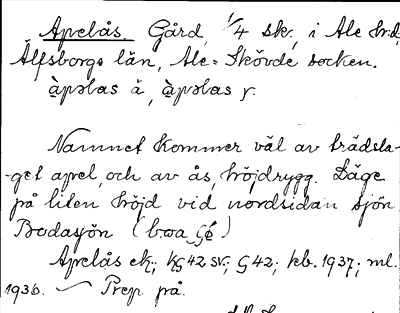 Apelås. Gård, 1/4 sk., i Ale hd,
Älfsborgs län, Ale-Skövde socken.
àpəlas å, àpəlas y.
Namnet kommer väl av trädsla-
-get apel, och av ås, höjdrygg. Läge
på liten höjd vid nordsidan sjön
Bodasjön (
Apelås ek; kg 42 sv; G 42; kb. 1937; ml.
1936. — Prep på.